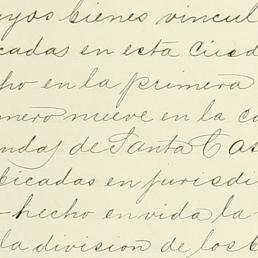 yos bienes vincul
cadas en esta Ciud
ho en la primera
mero nueve en la ca
ndas de Santa Cas
bicadas en jurisdi
-hecho en vida la
la division de los b